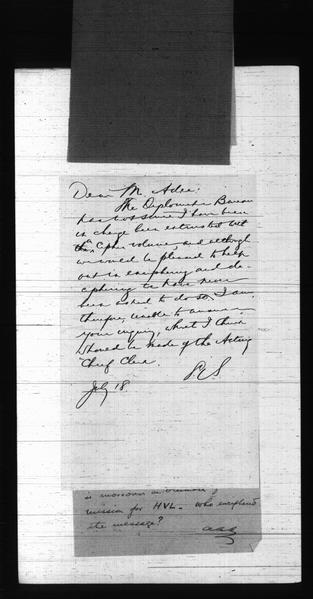 Dear Mr Adee:
The Diplomatic Bureau
has not since I have been
in charge been entrusted with
the Cipher volume, and although
we would be pleased to help
out in enciphering and de-
ciphering we have never
been asked to do so. I am,
therefore, unable to answer
your inquiry, which I think
should be made of the Acting
Chief Clerk.
July 18.
is
mission for HVL - who enciphered
the message?